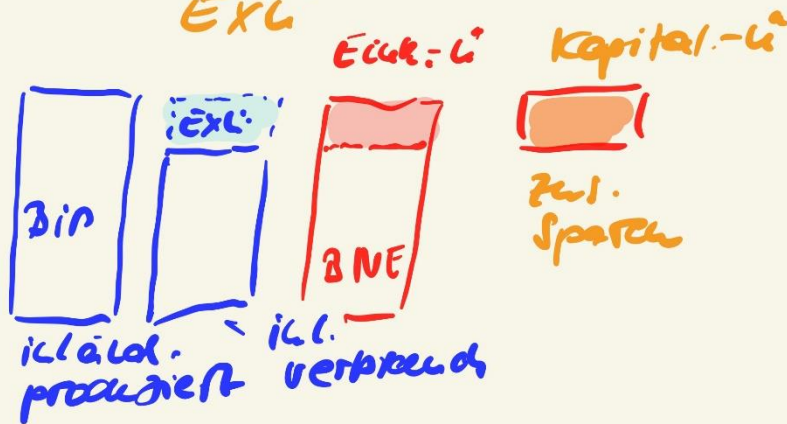 EXÜ
Eink.-Ü
Kapital.-Ü
EXÜ
BIP
BNE
zus.
Sparen
inländ.
produziert
inl.
verbrauch